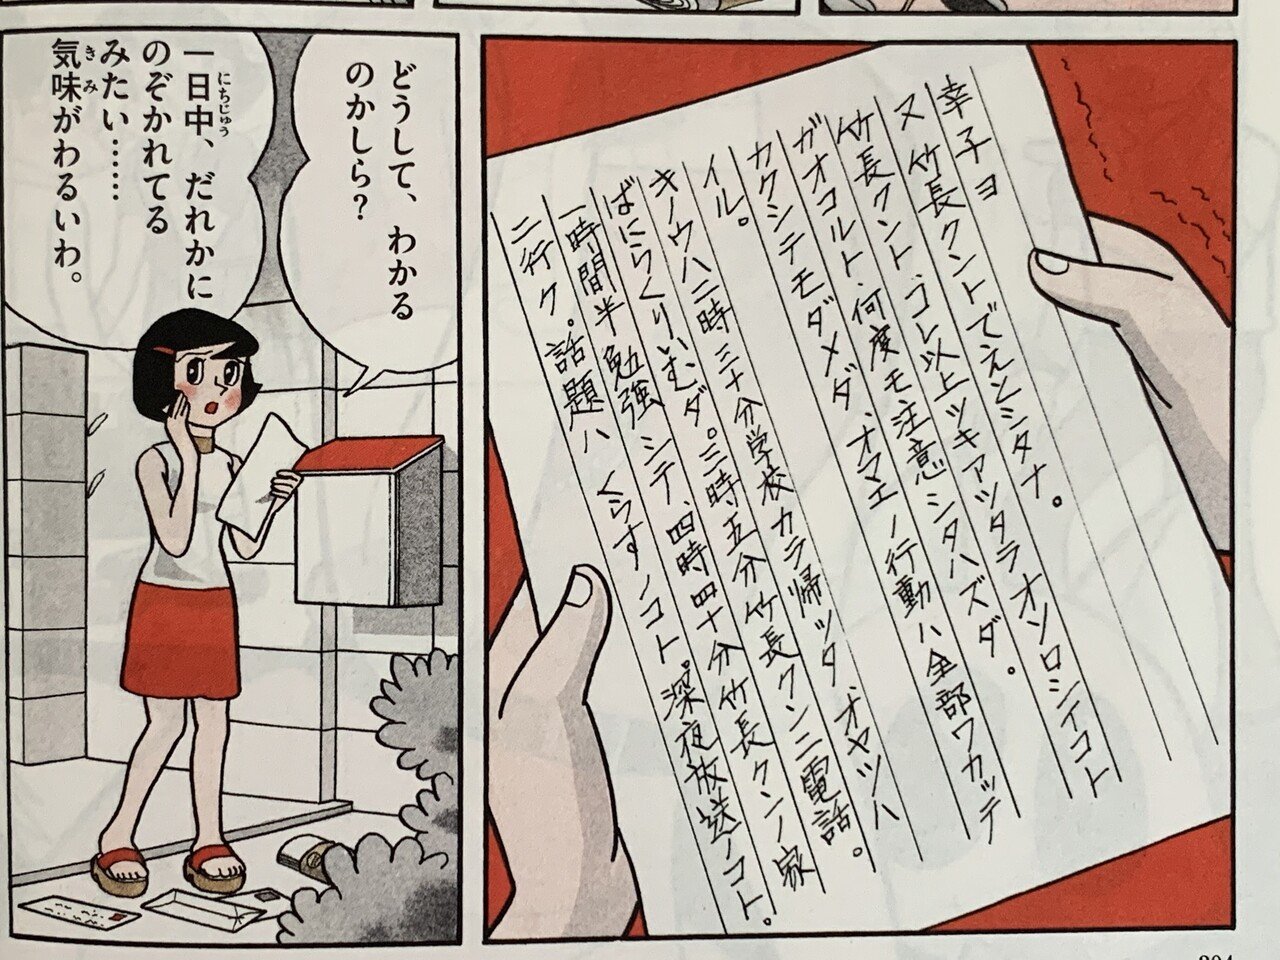 幸子ヨ
又竹長クントでえとシタナ。
竹長クント、コレ以上ツキアッタラオソロシイコト
ガオコルト、何度モ注意シタハズダ。
カクシテモダメダ、オマエノ行動ハ全部ワカッテ
イル。
キノウハ二時三十分学校カラ帰ッタ オヤツハ
ばにらくりいむダ。三時五分竹長クンニ電話。
一時間半勉強シテ、四時四十分竹長クンノ家
ニ行ク。話題ハくらすノコト。深夜放送ノコト。
どうして、わかる
のかしら?
にちじゅう
一日中、だれかに
のぞかれてる
みたい……
きみ
気味がわるいわ。